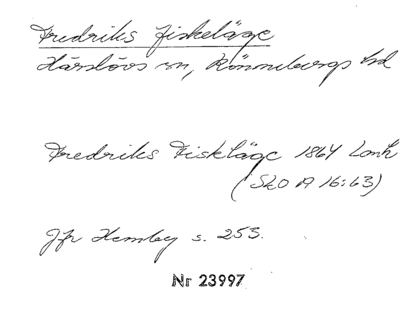 Fredriks fiskeläge
Härslövs sn, Rönnebergs hd
Fredriks Fiskläge 1864 Lonk
(SkO A 16:63)
Jfr Hemby s. 253.
Nr 23997